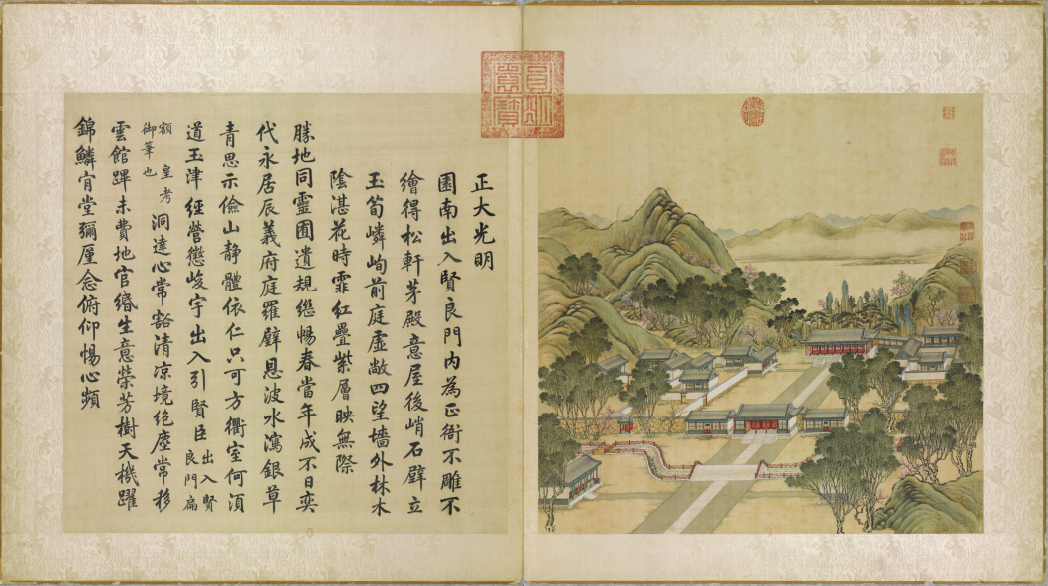 圓明
園寶
正大光明
園南出入賢良門內為正衙不雕不
繪得松軒茅殿意屋後峭石壁立
玉筍嶙峋前庭虛敞四望墻外林木
陰湛花時霏紅疊紫層映無際
勝地同靈囿遺規継暢春當年成不日奕
代永居辰義府庭羅璧恩波水瀉銀草
青思示儉山靜體依仁只可方衢室何須
道玉津經營懲峻宇出入引賢臣 出入賢良門扁
額 皇考御筆也 洞達心常豁清凉境絶塵常移
雲館蹕未費地官緡生意榮芳樹天機躍
錦鱗肯堂彌厪念俯仰惕心頻